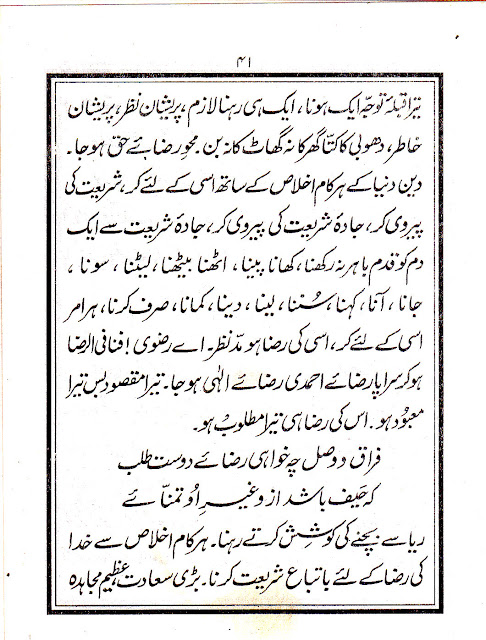 ۴۱
تیرا قبلۂ توجہ ایک ہونا، ایک ہی رہنا لازم، پریشان نظر، پریشان
خاطر، دھوبی کا کتّا گھر کا نہ گھاٹ کا نہ بن۔ محوِ رضائے حق ہوجا۔
دین دنیا کے ہر کام اخلاص کے ساتھ اسی کے لئے کر، شریعت کی
پیروی کر، جادۂ شریعت کی پیروی کر، جادۂ شریعت سے ایک
دم کو قدم باہر نہ رکھنا، کھانا پینا، اٹھنا بیٹھنا، لیٹنا، سونا،
جانا، آنا، کہنا، سُننا، لینا، دینا، کمانا، صرف کرنا، ہر امر
اسی کے لئے کر، اسی کی رضا ہو مدّ نظر۔ اے رضوی! فنا فی الرضا
ہوکر سراپا رضائے احمدی رضائے الٰہی ہوجا۔ تیرا مقصود بس تیرا
معبُود ہو۔ اس کی رضا ہی تیرا مطلوبُ ہو۔
فراق و وصل چہ خواہی رضائے دوست طلب
کہ حَیف باشد از و غیرِ اُو تمنّائے
ریا سے بچنے کی کوشِش کرتے رہنا۔ ہر کام اخلاص سے خدا
کی رضا کے لئے باتباع شریعت کرنا۔ بڑی سعادت عظیم مجاہدہ